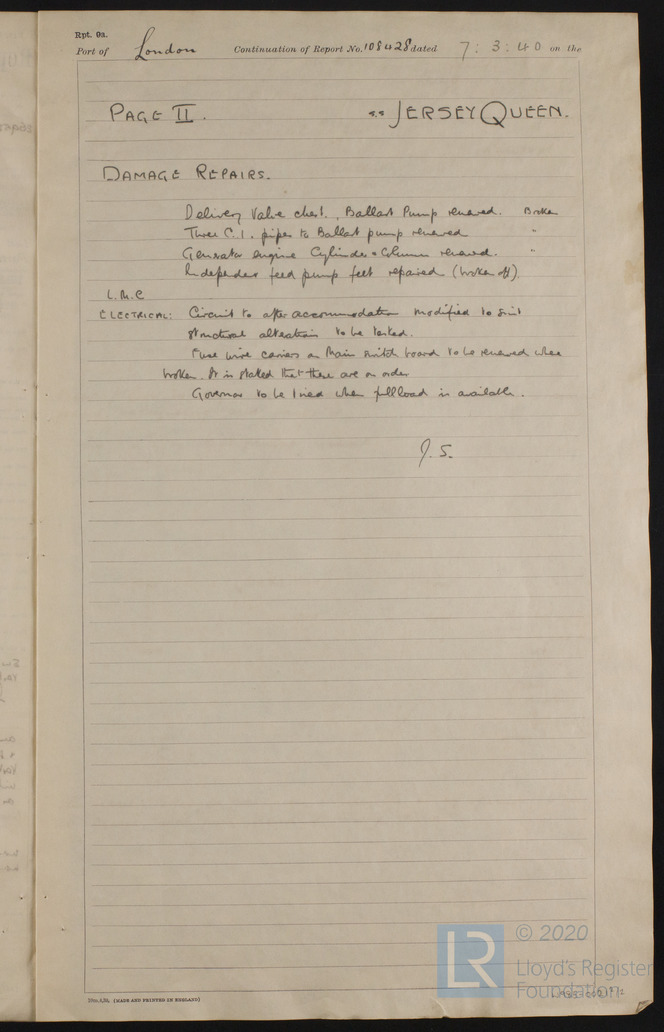 Rpt. 9a.
Port of London Continuation of Report No. 108428 dated 7 : 3 : 40 on the
PAGE II. s.s JERSEY QUEEN.
DAMAGE REPAIRS.
Delivery Valve chest, Ballast Pump renewed. Broken
Three C.I. pipes to Ballast pump renewed "
Generator engine Cylinder & Column renewed. "
Independent feed pump feet repaired (broken off).
L.M.C
ELECTRICAL: Circuit to after accommodation modified to suit
structural alterations to be tested.
Fuse wire carriers on Main switch board to be renewed where
broken. It is stated that these are on order
Governor to be tried when full load is available.
J. S.
© 2020
Lloyd's Register
Foundation
(MADE AND PRINTED IN ENGLAND)